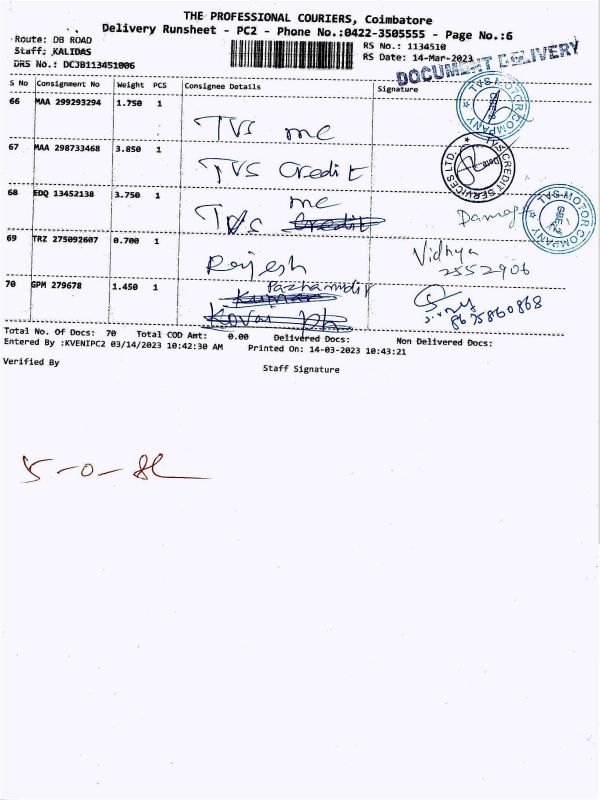 THE PROFESSIONAL COURIERS, Coimbatore
Delivery Runsheet - PC2 - Phone No.:0422-3505555 - Page No.:6
Route: DB ROAD
Staff: KALIDAS
DRS No.: DCJB113451006
RS No.: 1134510
RS Date: 14-Mar-2023
DOCUMENT DELIVERY
S No Consignment No Weight PCS Consignee Details Signature
66 MAA 299293294 1.750 1
TVS mc
TVS MOTOR COMPANY
67 MAA 298733468 3.850 1
TVS Credit
TVS CREDIT SERVICES LTD.
68 EDQ 13452138 3.750 1
TVS mc
Credit
TVS MOTOR COMPANY
69 TRZ 275092607 0.700 1
Rajesh
Vidhya
2552906
70 GPM 279678 1.450 1
Pazhamudir
Kumar
Kovai ph
8675860868
Total No. Of Docs: 70 Total COD Amt: 0.00 Delivered Docs: Non Delivered Docs:
Entered By :KVENIPC2 03/14/2023 10:42:30 AM Printed On: 14-03-2023 10:43:21
Verified By Staff Signature